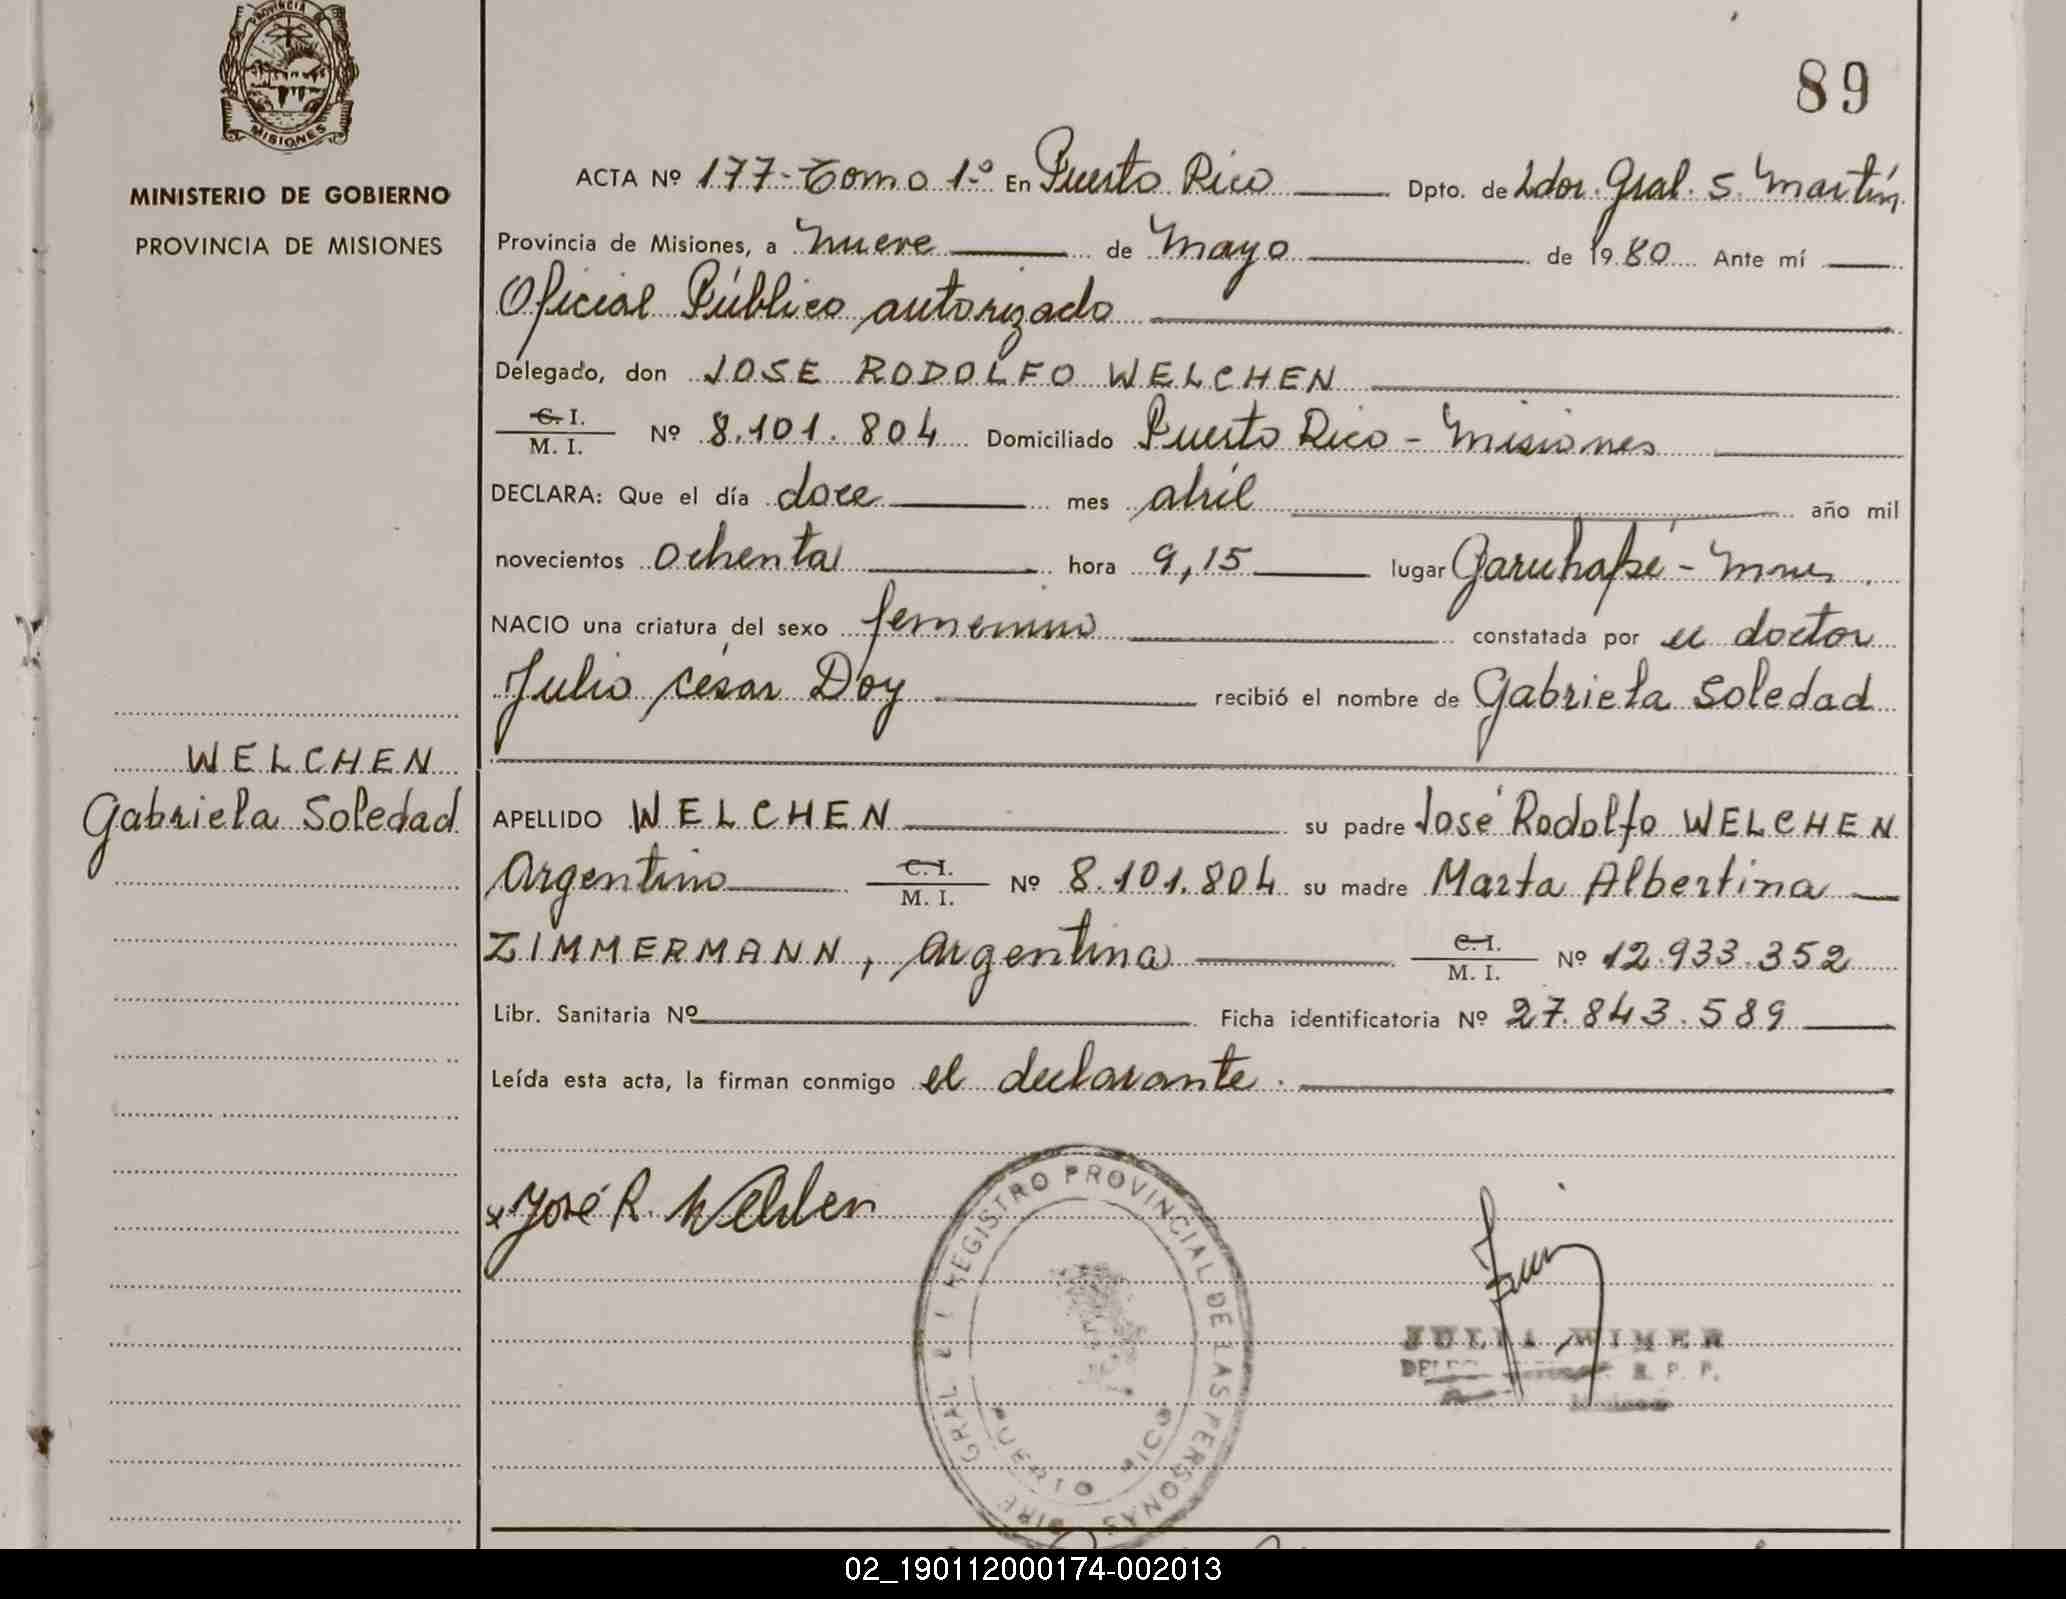 PROVINCIA DE
MISIONES
MINISTERIO DE GOBIERNO
PROVINCIA DE MISIONES
WELCHEN
Gabriela Soledad
89
ACTA Nº 177- Tomo 1º En Puerto Rico Dpto. de Ldor. Gral. S. Martín
Provincia de Misiones, a nueve de Mayo de 1980 Ante mí
Oficial Público autorizado
Delegado, don JOSE RODOLFO WELCHEN
C. I.
M. I. Nº 8.101.804 Domiciliado Puerto Rico - Misiones
DECLARA: Que el día doce mes abril año mil
novecientos ochenta hora 9,15 lugar Garuhapé - Mnes.
NACIO una criatura del sexo femenino constatada por el doctor
Julio césar Doy recibió el nombre de Gabriela Soledad
APELLIDO WELCHEN su padre José Rodolfo WELCHEN
Argentino C. I. M. I. Nº 8.101.804 su madre Marta Albertina
ZIMMERMANN, Argentina C. I. M. I. Nº 12.933.352
Libr. Sanitaria Nº Ficha identificatoria Nº 27.843.589
Leída esta acta, la firman conmigo el declarante.
x José R. Welchen
REGISTRO PROVINCIAL DE LAS PERSONAS
GRAL
PUERTO RICO
JULIA WIMER
R. P. P.
02_190112000174-002013